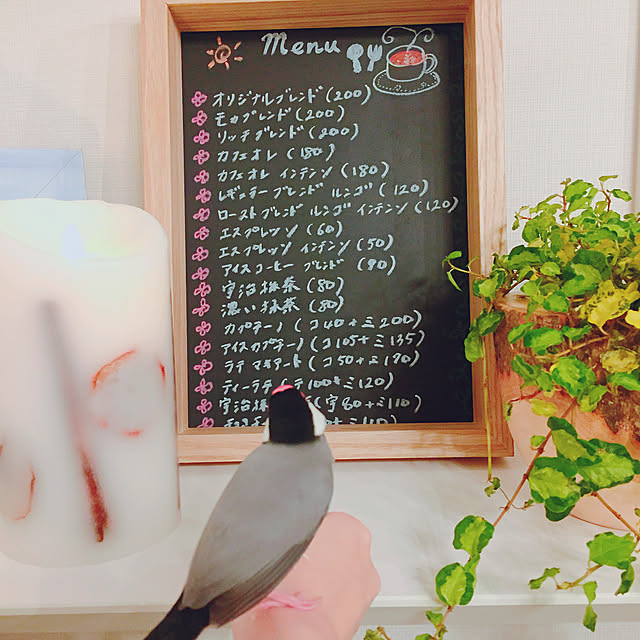 Menu
オリジナルブレンド(200)
モカブレンド(200)
リッチブレンド(200)
カフェオレ(180)
カフェオレ インテンソ(180)
レギュラーブレンド ルンゴ(120)
ローストブレンド ルンゴ インテンソ(120)
エスプレッソ(60)
エスプレッソ インテンソ(50)
アイスコーヒーブレンド(90)
宇治抹茶(80)
濃い抹茶(80)
カプチーノ(コ40+ミ200)
アイスカプチーノ(コ105+ミ135)
ラテ マキアート(コ50+ミ190)
ティーラテ(テ100+ミ120)
宇治抹 (宇80+ミ110)